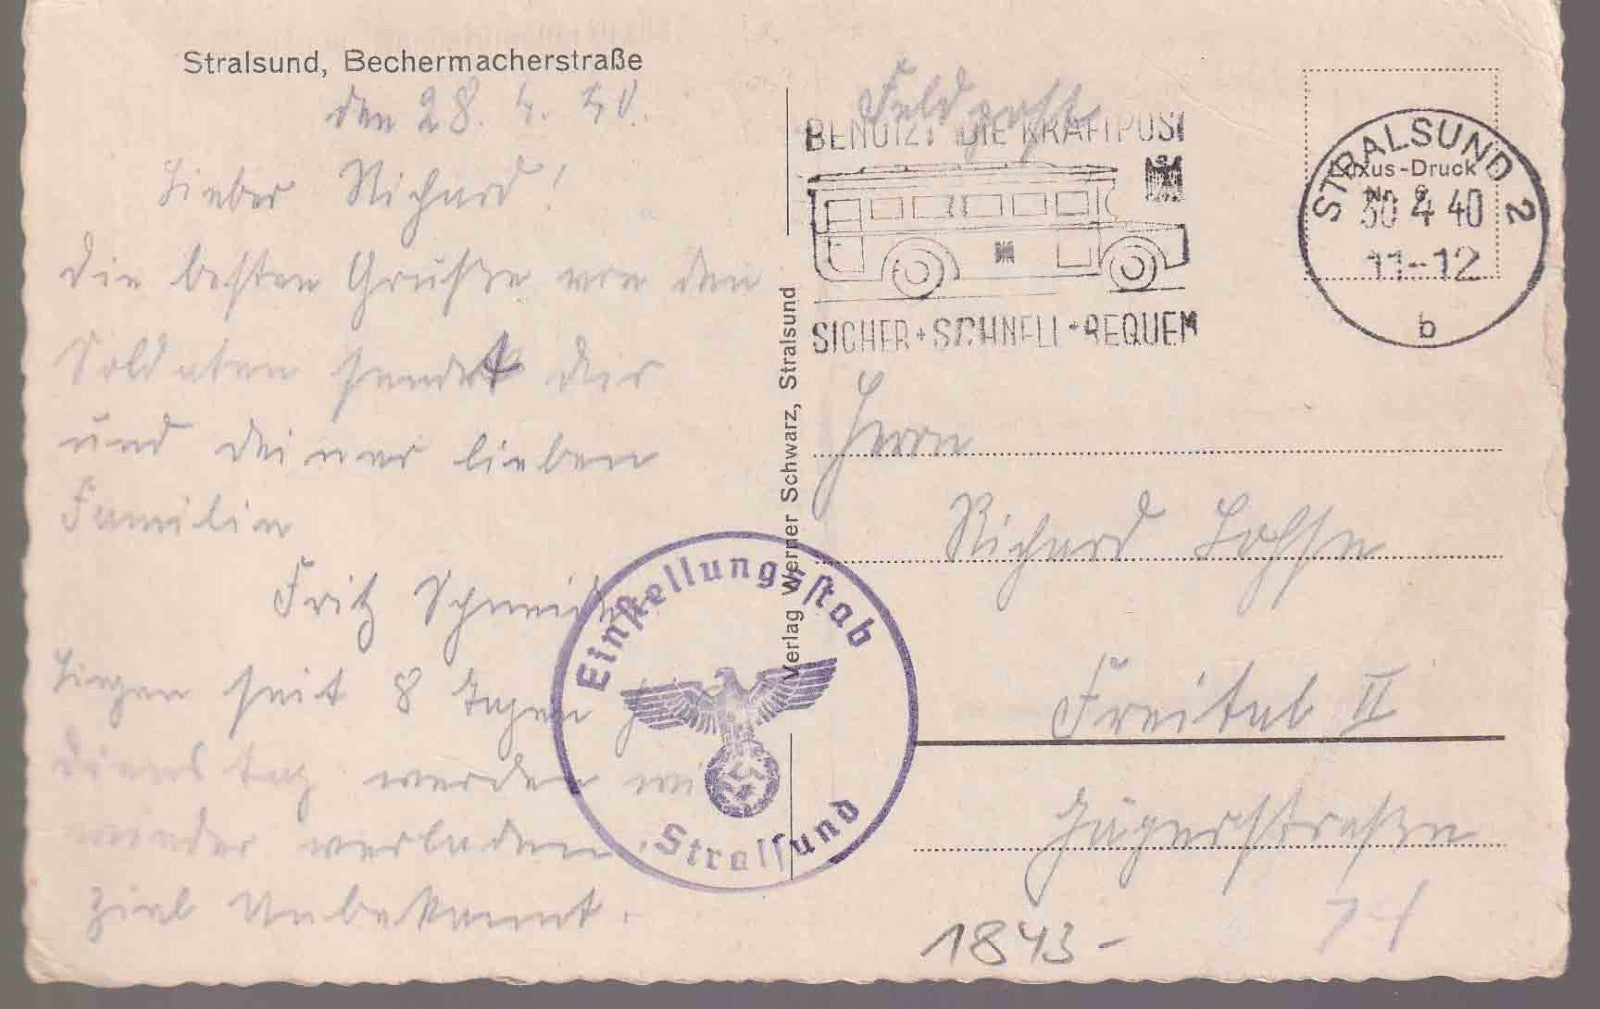 Stralsund, Bechermacherstraße
den 28. 4. 40.
Lieber Richard!
die besten Grüße von den
Soldaten sendet dir
und deiner lieben
Familie
Fritz
Liegen seit 8 Tagen
Dienstag werden wir
wieder verladen.
Ziel Unbekannt.
Verlag Werner Schwarz, Stralsund
Feldpost
BENUTZT DIE KRAFTPOST
SICHER + SCHNELL + BEQUEM
Luxus-Druck
STRALSUND 2
30 4 40
11-12
b
Herrn
Richard Lohse
Freital II
Jägerstraße
Einstellungsstab
Stralsund
1843-